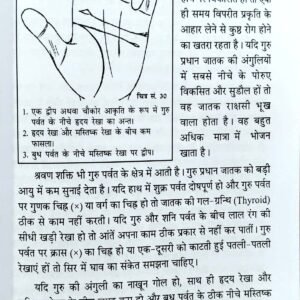 ही समय विपरीत प्रकृति के
आहार लेने से कुष्ठ रोग होने
का खतरा रहता है। यदि गुरु
प्रधान जातक की अंगुलियों
में सबसे नीचे के पोरुए
विकसित और सुडौल हों तो
वह जातक राक्षसी भूख
वाला होता है। वह बहुत
अधिक मात्रा में भोजन
खाता है।
चित्र सं. 30
1. एक द्वीप अथवा चौकोर आकृति के रूप में गुरु
पर्वत के नीचे हृदय रेखा का अन्त।
2. हृदय रेखा और मस्तिष्क रेखा के बीच कम
फासला।
3. बुध पर्वत के नीचे मस्तिष्क रेखा पर द्वीप।
श्रवण शक्ति भी गुरु पर्वत के क्षेत्र में आती है। गुरु प्रधान जातक को बड़ी
आयु में कम सुनाई देता है। यदि हाथ में शुक्र पर्वत दोषपूर्ण हो और गुरु पर्वत
पर गुणक चिह्न (×) या वर्ग का चिह्न हो तो जातक की गल-ग्रन्थि (Thyroid)
ठीक से काम नहीं करती। यदि गुरु और शनि पर्वत के बीच लाल रंग की
सीधी खड़ी रेखा हो तो आंतें अपना काम ठीक प्रकार से नहीं कर पातीं। गुरु
पर्वत पर क्रास (×) का चिह्न हो या एक-दूसरी को काटती हुई पतली-पतली
रेखाएं हों तो सिर में घाव का संकेत समझना चाहिए।
यदि गुरु की अंगुली का नाखून गोल हो, साथ ही हृदय रेखा और